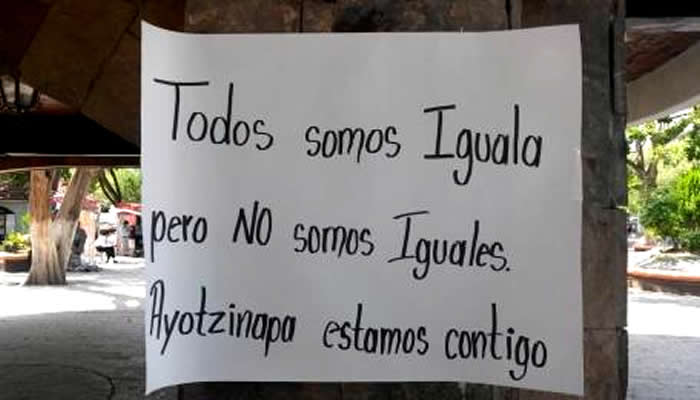 Todos somos Iguala
pero NO somos Iguales.
Ayotzinapa estamos contigo